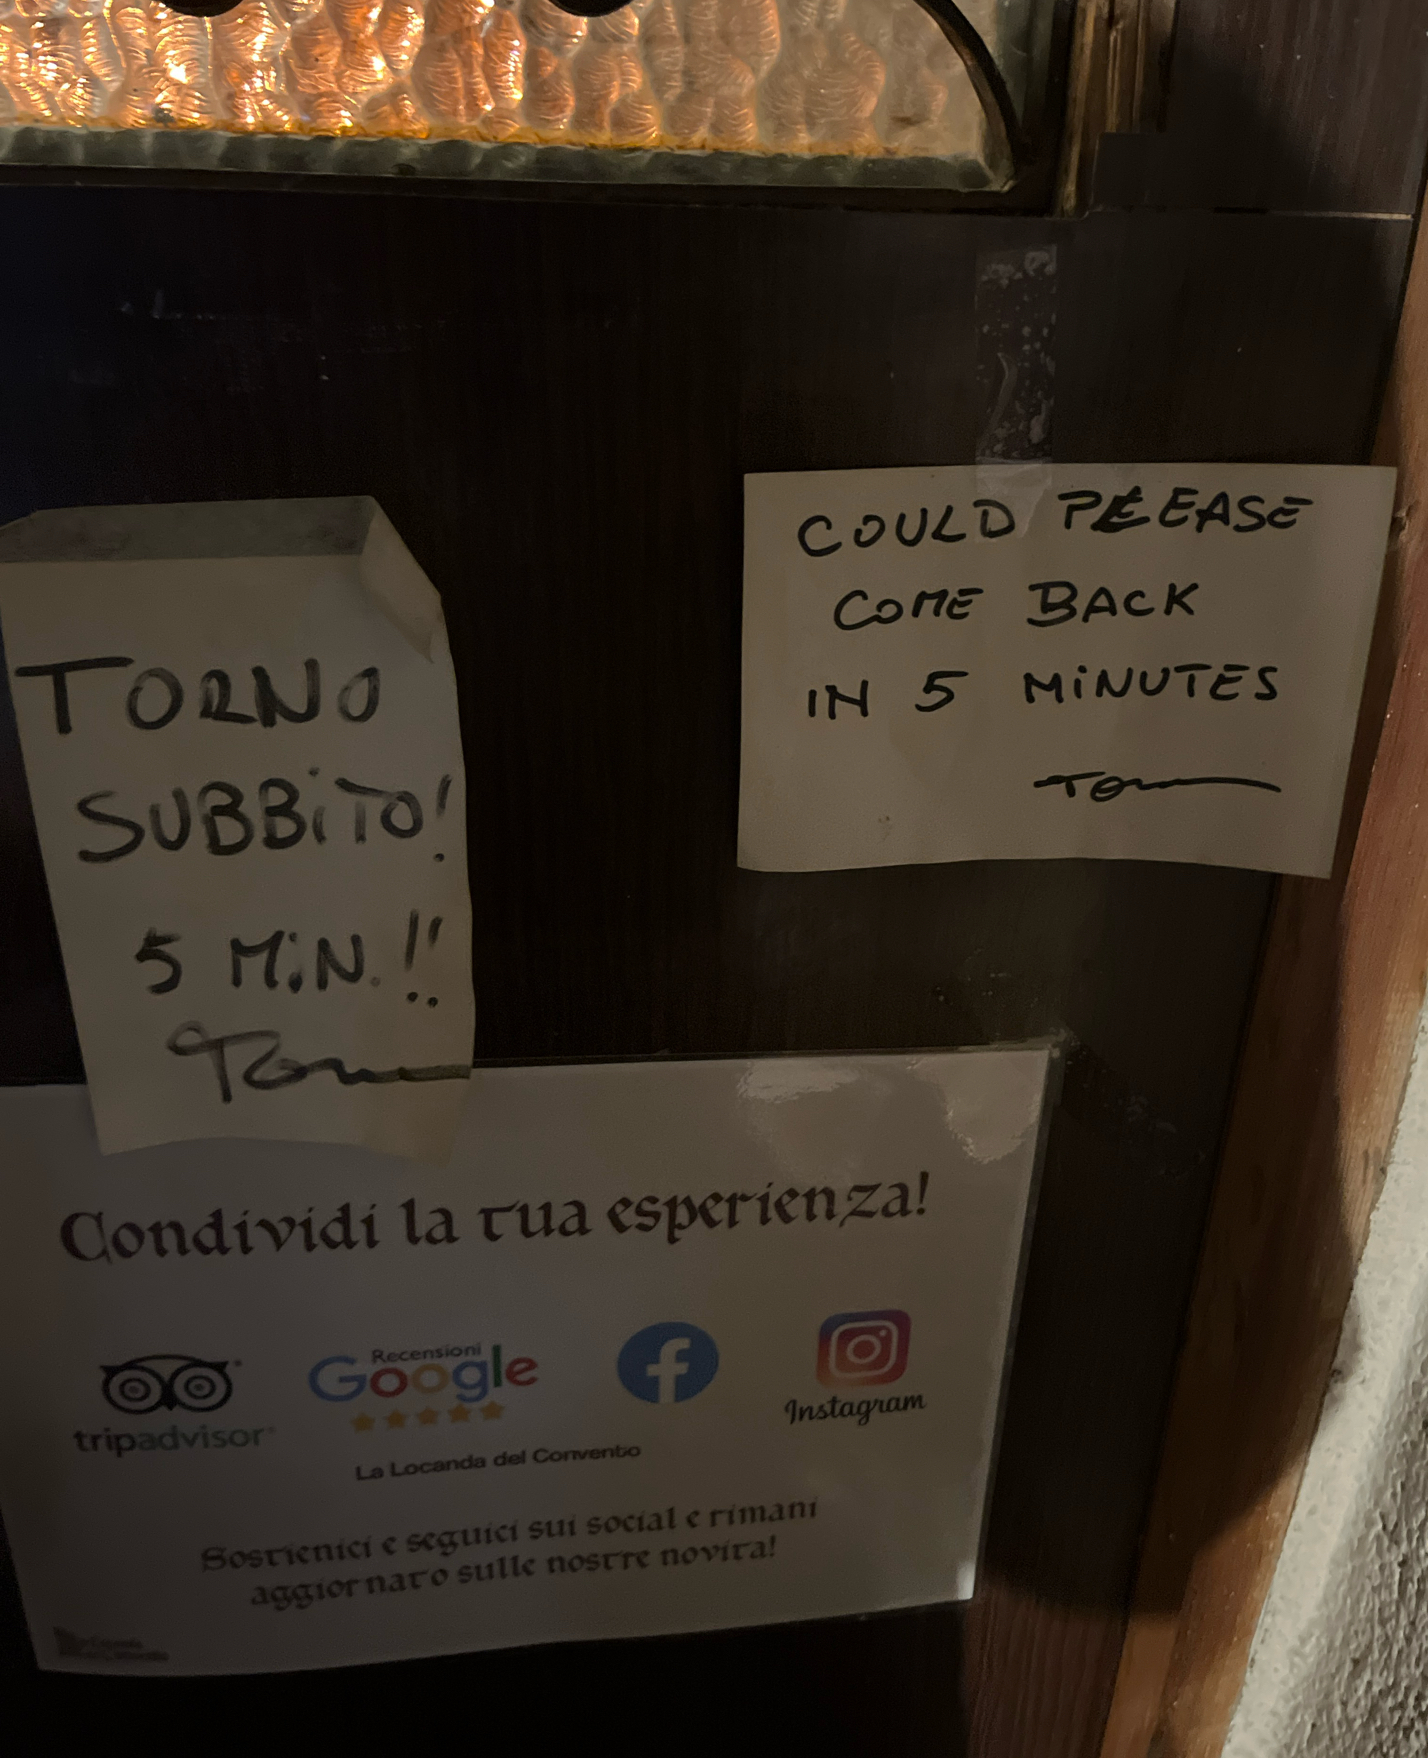 TORNO
SUBBiTO!
5 MiN.!!
Tom
COULD PLEASE
COME BACK
IN 5 MiNUTES
Tom
Condividi la tua esperienza!
tripadvisor
Recensioni
Google
Instagram
La Locanda del Convento
Sostienici e seguici sui social e rimani
aggiornato sulle nostre novita!